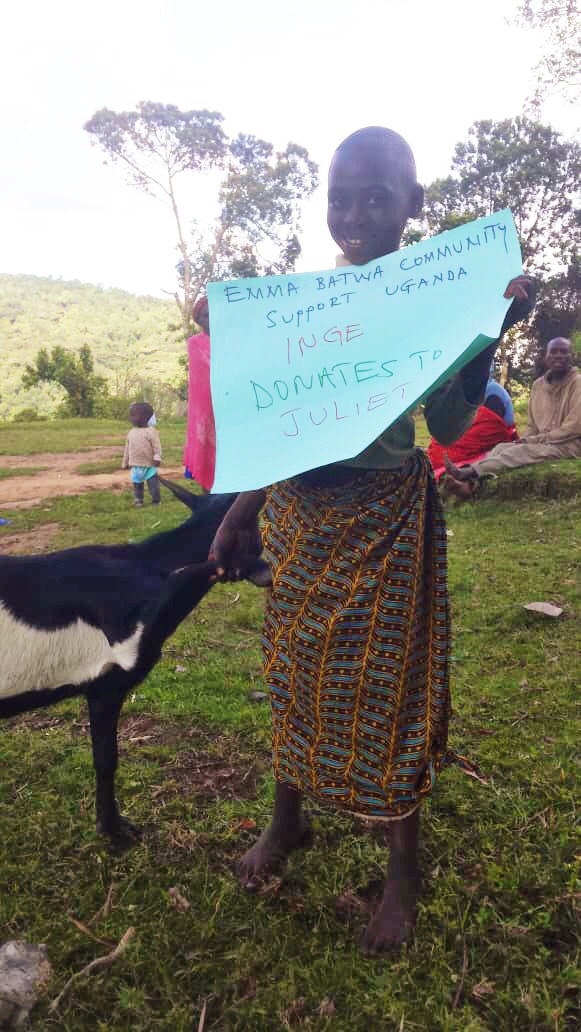 EMMA BATWA COMMUNITY
SUPPORT UGANDA
INGE
DONATES TO
JULIET